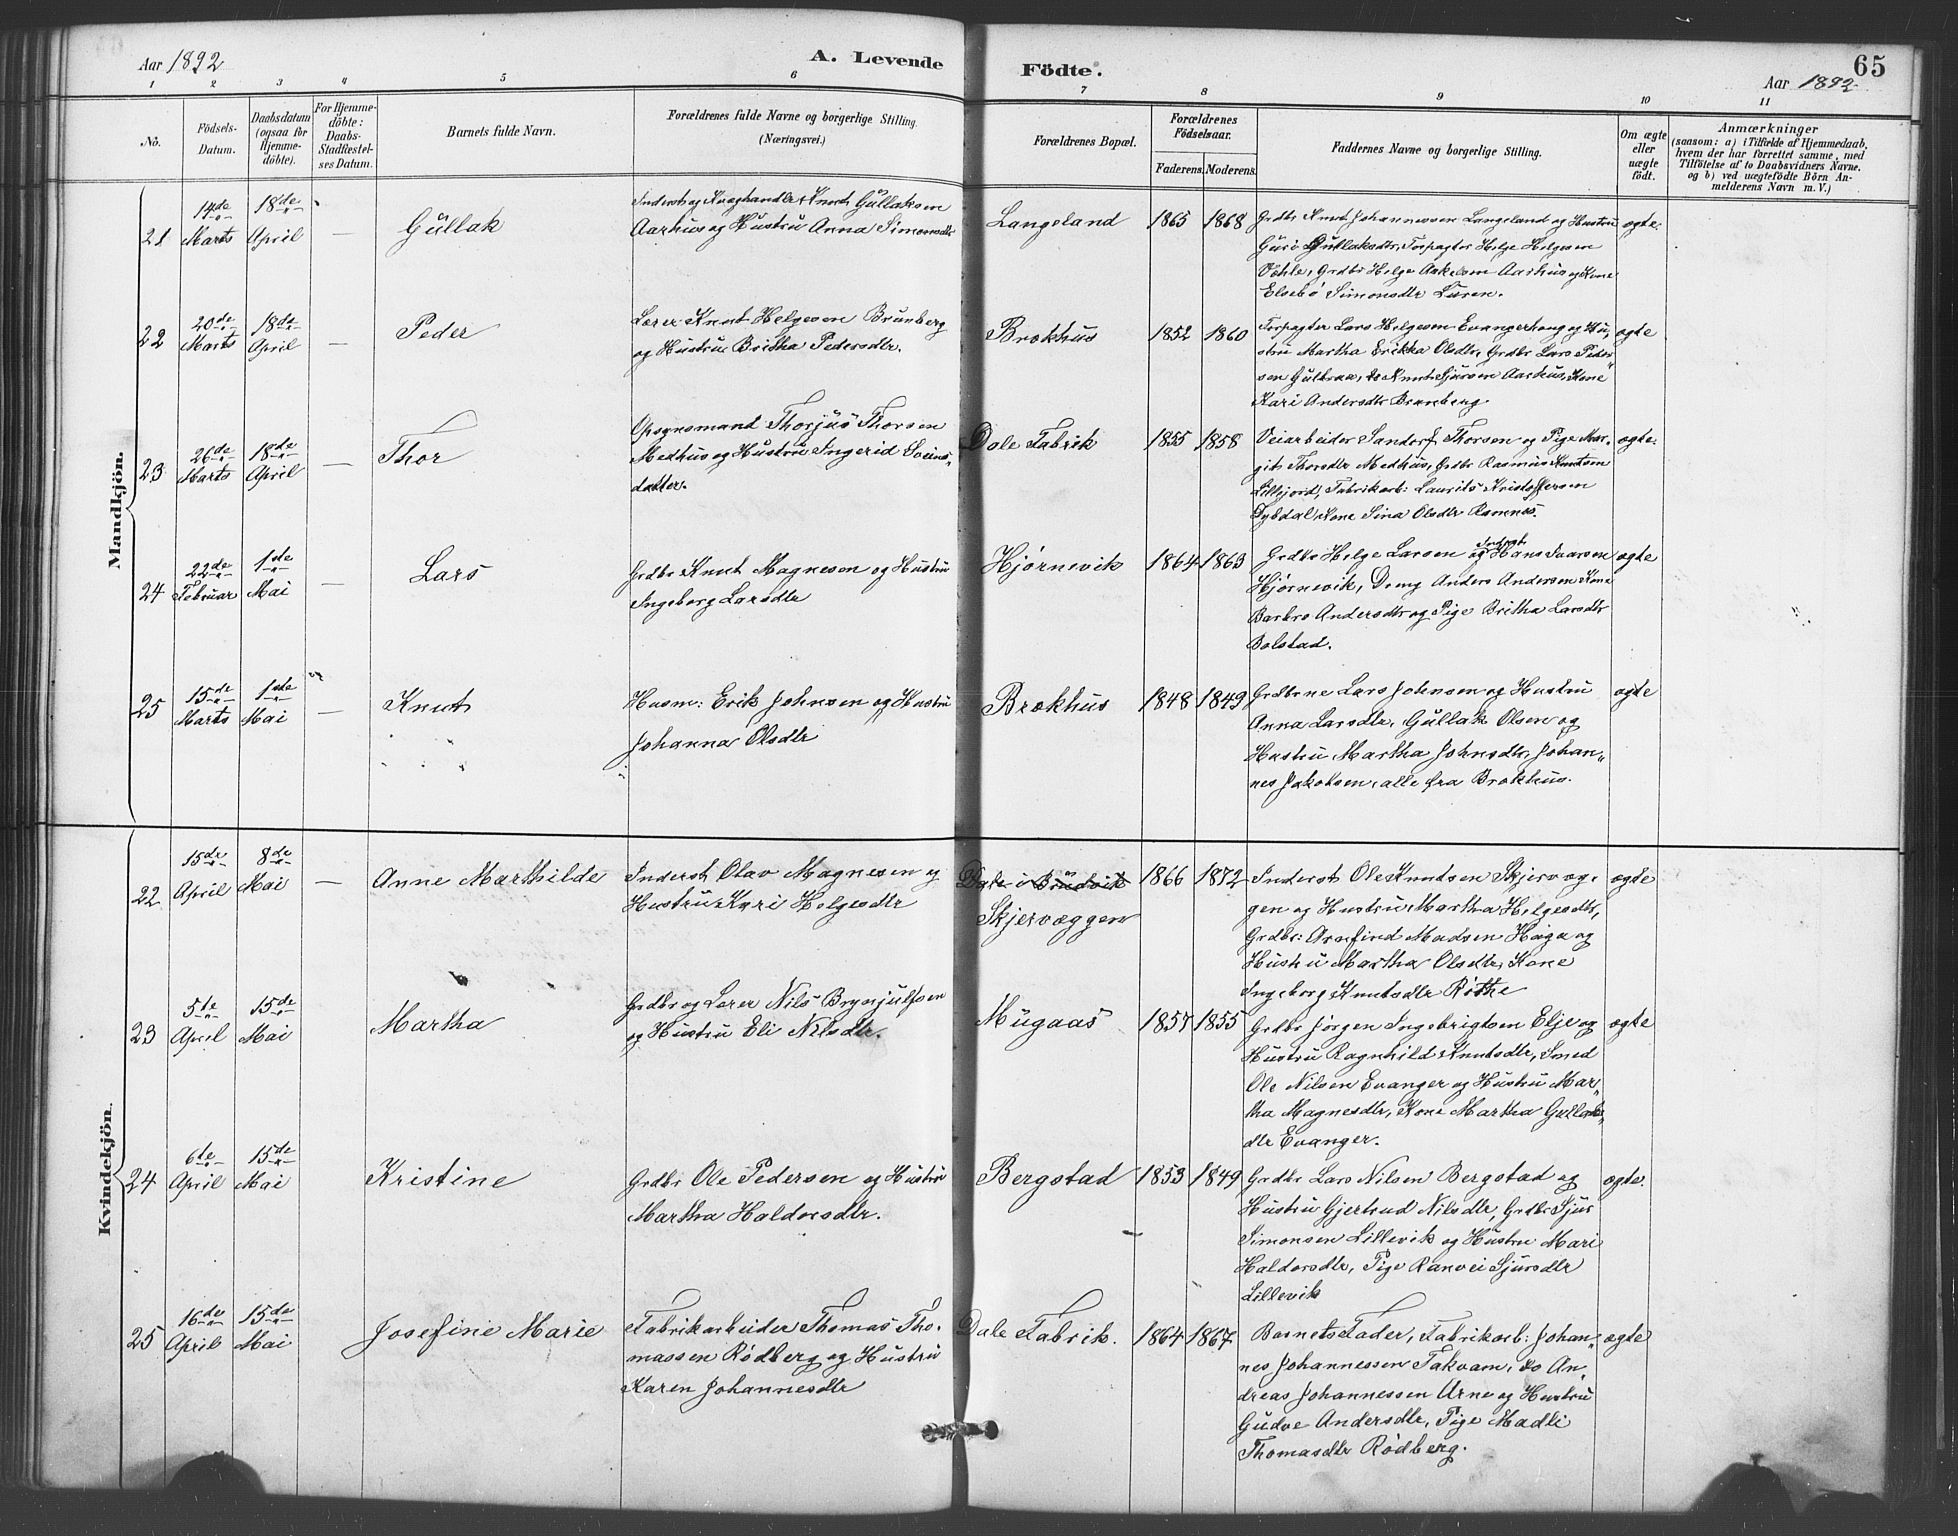 Aar 1892
A. Levende
Födte.
65
Aar 1892
1 2 3 4 5 6 7 8 9 10 11
No.
Födsels-Datum.
Daabsdatum (ogsaa for Hjemme-döbte).
For Hjemme-döbte: Daabs-Stadfæstel-ses Datum.
Barnets fulde Navn.
Forældrenes fulde Navne og borgerlige Stilling. (Næringsvei.)
Forældrenes Bopæl.
Forældrenes Födselsaar.
Faderens. Moderens.
Faddernes Navne og borgerlige Stilling.
Om ægte eller uægte födt.
Anmærkninger
(saasom: a) i Tilfælde af Hjemmedaab, hvem der har forrettet samme, med Tilföielse af to Daabsvidners Navne. og b) ved uægtefödte Börn An-melderens Navn m. V.)
Mandkjön.
21 14de Marts 18de April — Güllak
Inderst og Kvæghandler Knut Güllaksen
Aarhus og Hustru Anna Simonsdtr
Langeland 1865 1868
Grdbr Knut Johannessen Langeland og Hustru
Guro Güllaksdtr, Forpagter Helge Helgesen
Vöhle, Grdbr Helge Askelsen Aarhus og Kone
Elsebö Simonsdtr
ægte.
22 20de Marts 18de April — Peder
Lærer Knut Helgesen Brunberg
og Hustru Britha Pedersdtr.
Brækhus 1852 1860
Forpagter Lars Helgesen Evangerhaug og Hu-
stru Martha Erikka Olsdtr, Grdbr Lars Peder-
sen Gülbraa, do Knut Sjursen Aarhus, Kone
Kari Andersdtr Brunberg.
ægte
23 26de Marts 18de April — Thor
Opsynsmand Thorjüs Thorsen
Medhus og Hustru Ingerid Sveins-
datter.
Dale Fabrik 1855 1858
Veiarbeider Sandorf Thorsen og Pige Mar-
git Thorsdtr Medhus, Grdbr Rasmus Knutsen
Lillejord, Fabrikarb: Laurits Kristoffersen
Dybdal, Kone Sina Olsdtr Ramnes.
ægte.
24 22de Februar 1ste Mai — Lars
Grdbr Knut Magnesen og Hustru
Ingeborg Larsdtr
Hjørnevik 1864 1863
Grdbr Helge Larsen og Inderst Hans Ivarsen
Hjørnevik, Drng Anders Andersen Kone
Barbro Andersdtr og Pige Britha Larsdtr
Bolstad.
ægte
25 15de Marts 1ste Mai — Knut
Husm: Erik Johnsen og Hustru
Johanna Olsdtr
Brækhus 1848 1849
Grdbrne Lars Johnsen og Hustru
Anna Larsdtr, Güllak Olsen og
Hustru Martha Johnsdtr, Johan-
nes Jakobsen, alle fra Brækhus.
ægte
Kvindekjön.
22 15de April 8de Mai — Anne Marthilde
Inderst Olav Magnesen og
Hustru Kari Helgesdtr
Dale i Brüdvik
Skjervæggen
1866 1872
Inderst Ole Knudsen Skjervæg-
gen og Hustru Martha Helgesdtr,
Grdbr: Arnfind Madsen Haga og
Hustru Martha Olsdtr, Kone
Ingeborg Knutsdtr Röthe
ægte
23 5te April 15de Mai Martha
Grdbr og Lærer Nils Brynjulfsen
og Hustru Eli Nilsdtr.
Mügaas 1857 1855
Grdbr Jørgen Ingebrigtsen Elje og
Hustru Ragnhild Knutsdtr, Smed
Ole Nilsen Evanger og Hustru Mar-
tha Magnesdtr, Kone Martha Gullaks-
dtr Evanger.
ægte
24 6te April 15de Mai Kristine
Grdbr Ole Pedersen og Hustru
Martha Haldorsdtr.
Bergstad 1853 1849
Grdbr Lars Nilsen Bergstad og
Hustru Gjertrud Nilsdtr, Grdbr Sjur
Simonsen Lillevik og Hustru Mari
Haldorsdtr, Pige Ranvei Sjursdtr
Lillevik
ægte.
25 16de April 15de Mai Josefine Marie
Fabrikarbeider Thomas Tho-
massen Rödberg og Hustru
Karen Johannesdtr
Dale Fabrik. 1864 1867
Barnets Fader, Fabrikarb: Johan-
nes Johannessen Takvam, do An-
dreas Johannessen Urne og Hustru
Gudve Andersdtr, Pige Madli
Thomasdtr Rödberg.
ægte